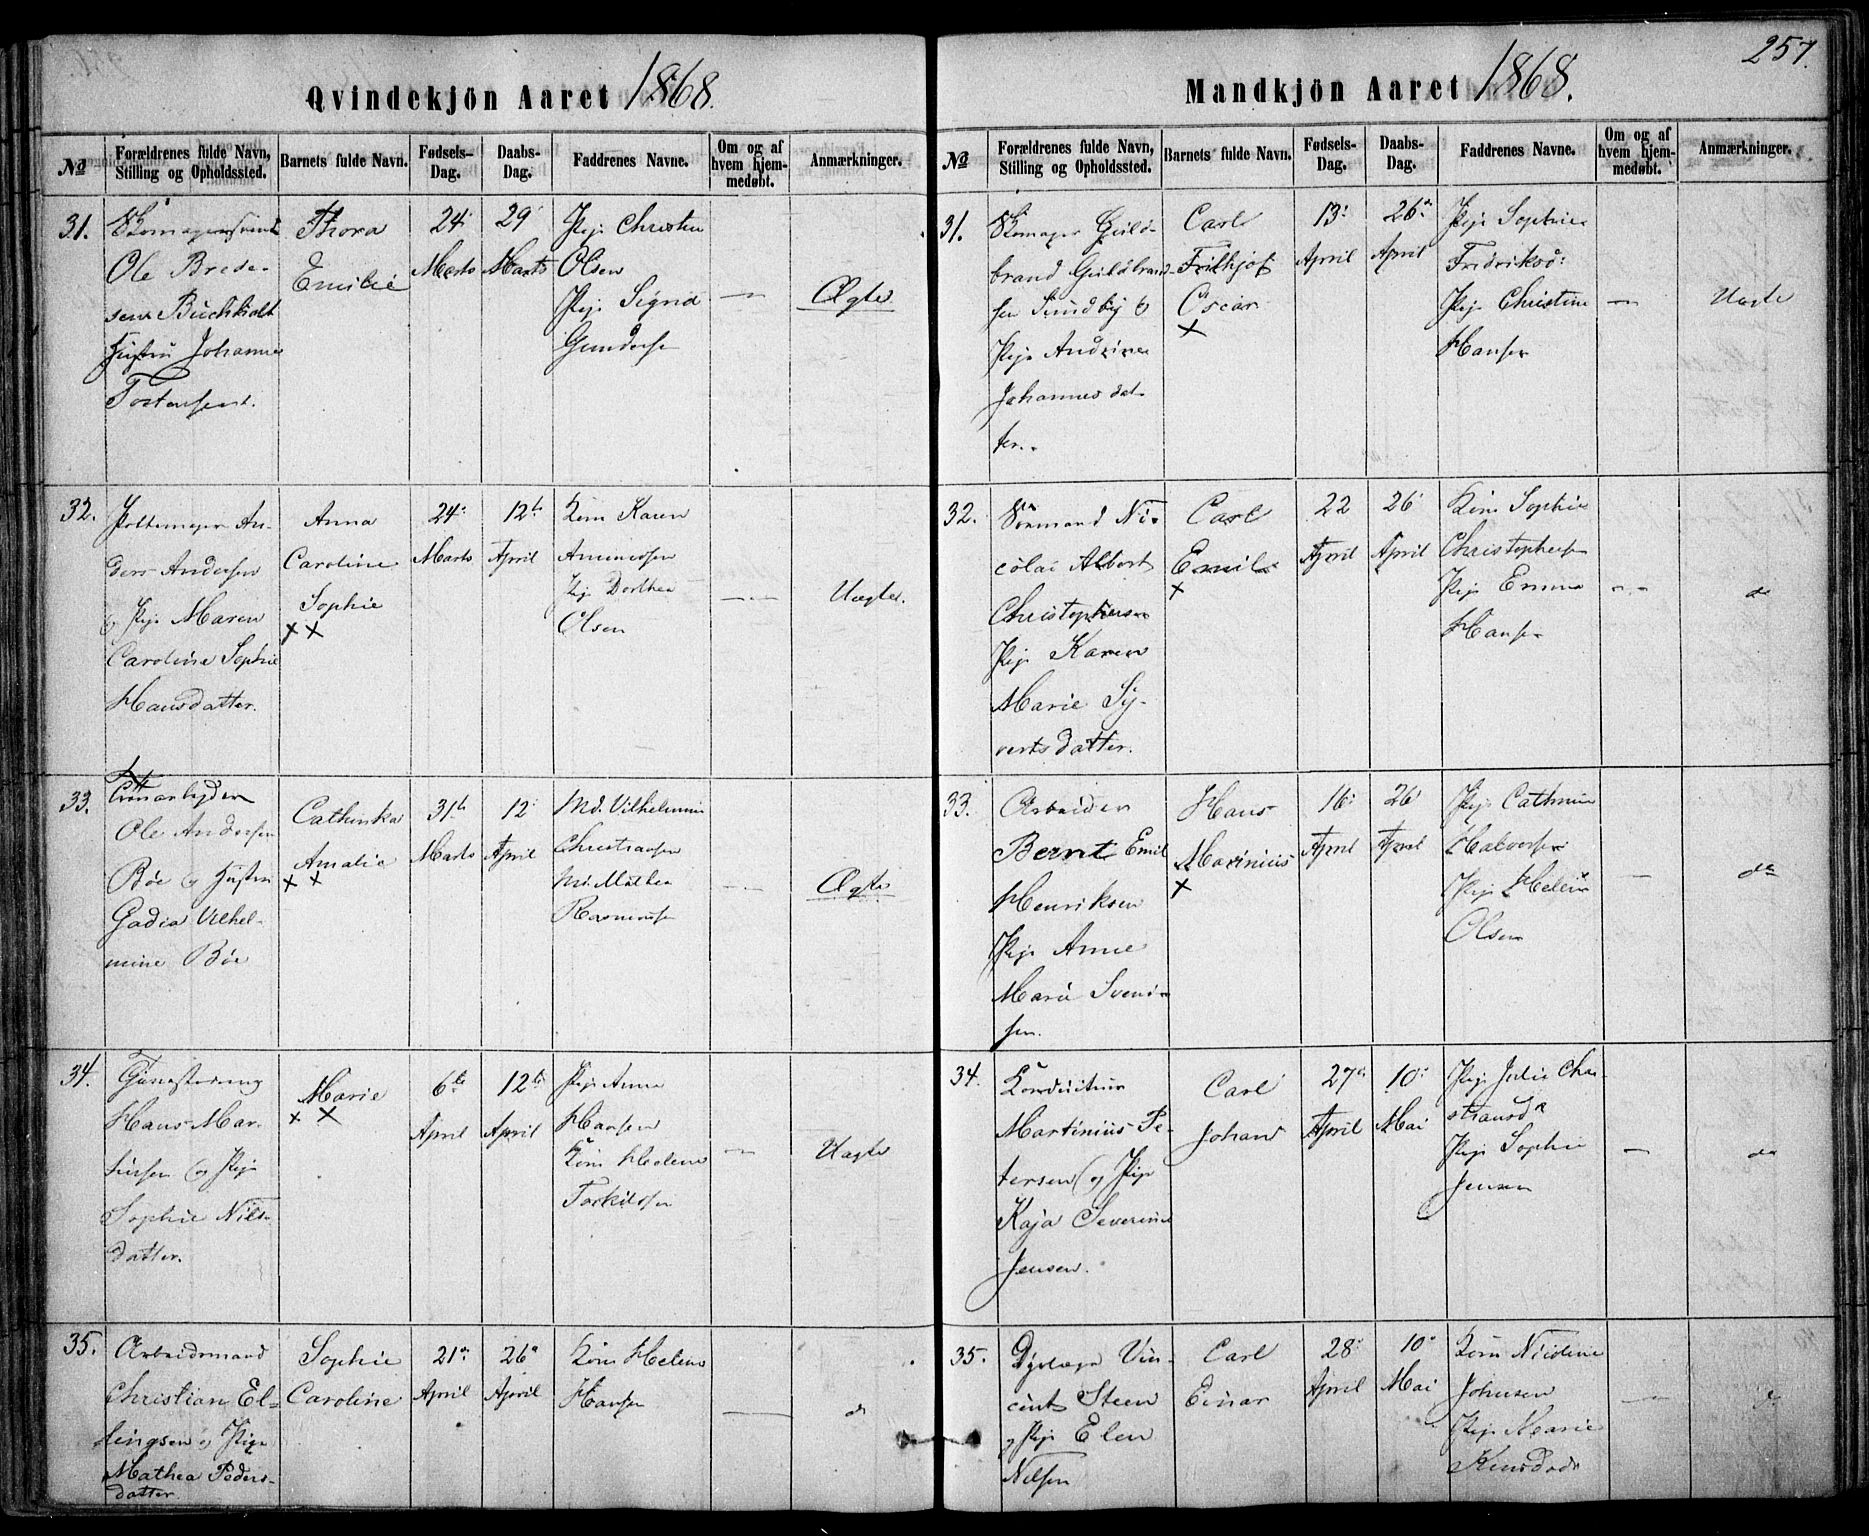 257.
Qvindekjön Aaret 1868.
No
Forældrenes fulde Navn,
Stilling og Opholdssted.
Barnets fulde Navn.
Fødsels-
Dag.
Daabs-
Dag.
Faddrenes Navne.
Om og af
hvem hjem-
medøbt.
Anmærkninger.
31.
Skomagersvend
Ole Brede-
sen Buchholdt
Hustru Johanne
Tostensen.
Thora
Emilie
24'
Marts
29'
Marts
Pige Christin
Olsen
Pige Signe
Gundersen
—
Ægte
32.
Pottemager An-
ders Andersen
og Pige Maren
Caroline Sophie
Hansdatter.
Anna
Caroline
Sophie
××
24'
Marts
12te
April
Kone Karen
Pige Dorthea
Olsen
— —
Uægte.
33.
Ole Andersen
Bøe og Hustru
Gadia Vilhel-
mine Bøe
Cathinka
Amalie
× ×
31te
Marts
12'
April
Md. Vilhelmine
Christiansen
Md. Mathea
Rasmussen
— —
Ægte
34.
Hans Mar-
tinsen og Pige
Sophie Nils-
datter.
Marie
× ×
6te
April
12te
April
Pige Anna
Hansen
Kone Helene
Torkilsen
—
Uægte
35.
Arbeidsmand
Christian El-
lingsen og Pige
Mathea Peders-
datter.
Sophie
Caroline
21de
April
26de
April
Kone Helene
Hansen
—
do
Mandkjön Aaret 1868.
No
Forældrenes fulde Navn,
Stilling og Opholdssted.
Barnets fulde Navn.
Fødsels-
Dag.
Daabs-
Dag.
Faddrenes Navne.
Om og af
hvem hjem-
medøbt.
Anmærkninger.
31.
Skomager Guld-
brand Guldbrand-
sen Sundby &
Pige Andrine
Johannesdat-
ter.
Carl
Frithjof
Oscar
×
13'
April
26de
April
Pige Sophie
Fredriksd:
Pige Christine
Hansen
—
Uægte
32.
Sømand Ni-
colai Albert
Christophersen
Pige Karen
Marie Sy-
vertsdatter.
Carl
Emil
×
22
April
26'
April
Kone Sophie
Christophersen
Pige Emma
Hansen
— —
do
33.
Arbeider
Bernt Emil
Henriksen
Pige Anne
Marie Svend-
sen.
Hans
Marinius
×
16'
April
26'
April
Pige Cathrine
Halvorsen
Pige Helene
Olsen
—
do
34.
Konduktør
Martinius Pe-
tersen og Pige
Kaja Severine
Jensen.
Carl
Johan
27de
April
10'
Mai
Pige Julie Chri-
stiansd.
Pige Sophie
Jensen
—
do
35.
Dyrlæge Vin-
cent Steen
og Pige Elen
Nilsen
Carl
Einar
28'
April
10'
Mai
Kone Nicoline
Johnsen
Pige Marie
Knudsd.
—
do